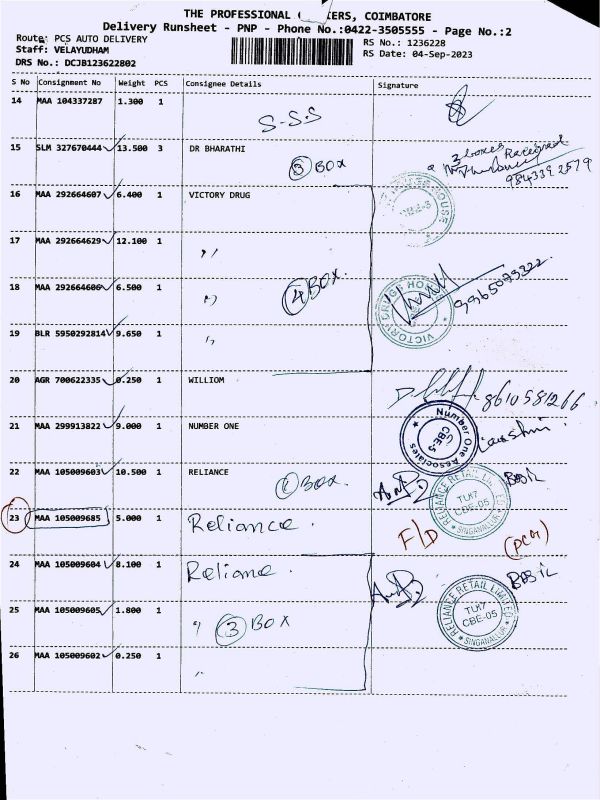 THE PROFESSIONAL COURIERS, COIMBATORE
Delivery Runsheet - PNP - Phone No.:0422-3505555 - Page No.:2
Route: PCS AUTO DELIVERY RS No.: 1236228
Staff: VELAYUDHAM RS Date: 04-Sep-2023
DRS No.: DCJB123622802
S No Consignment No Weight PCS Consignee Details Signature
14 MAA 104337287 1.300 1 S-S-S
15 SLM 327670444 13.500 3 DR BHARATHI
3 BOX 3 boxes
984339 2579
16 MAA 292664607 6.400 1 VICTORY DRUG
17 MAA 292664629 12.100 1 "
18 MAA 292664606 6.500 1 " 4 BOX. 9965073322
VICTORY DRUGE HOUSE
19 BLR 5950292814 9.650 1 "
20 AGR 700622335 0.250 1 WILLIOM 8610581266
21 MAA 299913822 9.000 1 NUMBER ONE
Number One Associates CBE-5
22 MAA 105009603 10.500 1 RELIANCE
1 BOX.
RELIANCE RETAIL LIMITED TLK7 CBE-05 SINGANALLUR
23 MAA 105009685 5.000 1 Reliance. F/D
24 MAA 105009604 8.100 1 Reliance.
25 MAA 105009605 1.800 1 " 3 BOX
RELIANCE RETAIL LIMITED TLK7 CBE-05 SINGANALLUR
26 MAA 105009602 0.250 1 "